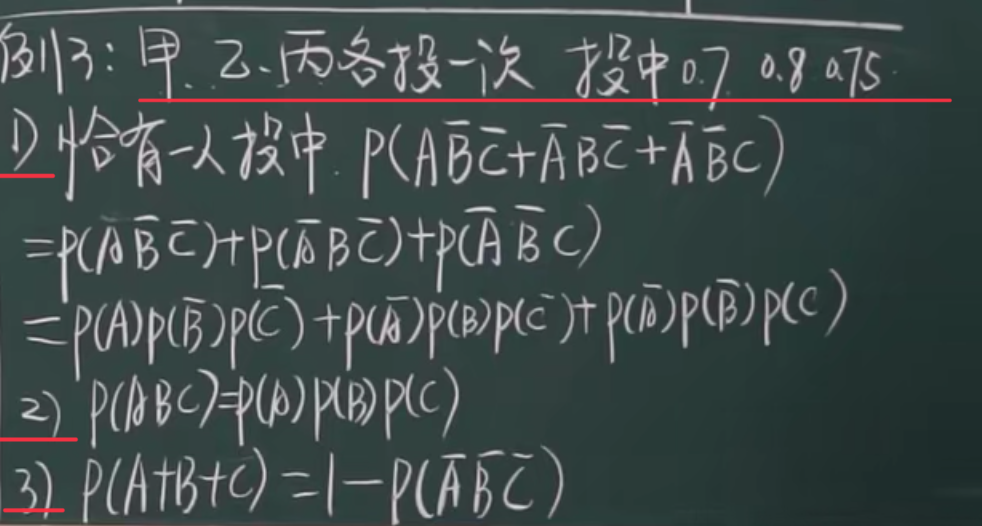 例3: 甲、乙、丙各投一次 投中0.7 0.8 0.75
1) 恰有一人投中. P(AB̄C̄+ĀBC̄+ĀB̄C)
=p(AB̄C̄)+p(ĀBC̄)+p(ĀB̄C)
=p(A)p(B̄)p(C̄)+p(Ā)p(B)p(C̄)+p(Ā)p(B̄)p(C)
2) P(ABC)=p(A)p(B)p(C)
3) P(A+B+C)=1-P(ĀB̄C̄)